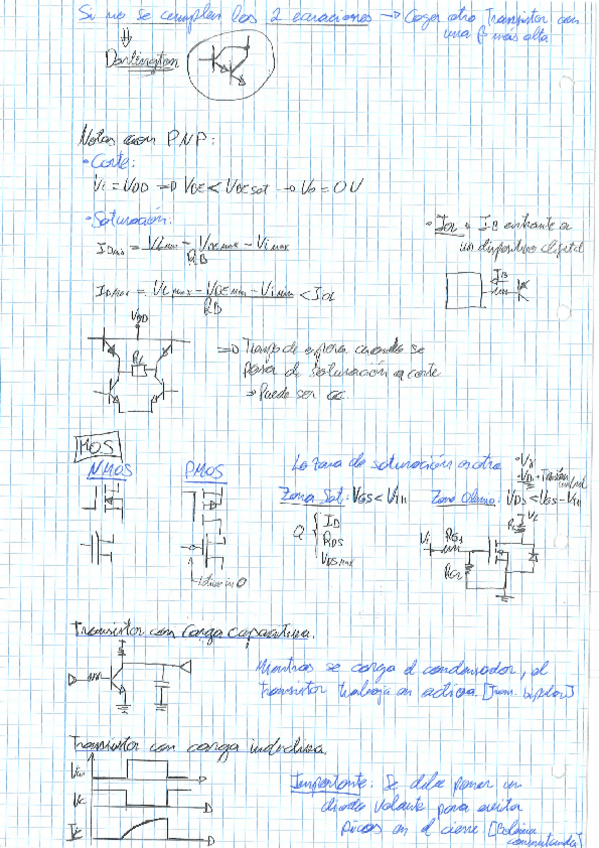 Si no se cumplen las 2 ecuaciones → Coger otro Transistor con
una β más alta
Darlington
Notas con PNP:
• Corte:
Vi = VDD ⇒ VBE < VBEsat → V0 = 0V
• Saturación:
• IOL = IB entrante a
un dispositivo digital
IBmin = VLmin - VBEmax - Vimax
RB
IBmax = VLmax - VBEmin - Vimin < IOL
RB
IB
VDD
RL
⇒ Tiempo de espera cuando se
pasa de saturación a corte
⇒ Puede ser CC
MOS
NMOS
PMOS
La zona de saturación es otra
Zona Sat: VGS < VTH
Zona Ohmica: VDS < VGS - VTH
Q
ID
RDS
VDSmax
RL
VL
Vi
RG1
RG2
Transistor con Carga Capacitiva.
Mientras se carga el condensador, el
transistor trabaja en activa [Tran. bipolar]
Transistor con carga inductiva.
Importante: Se debe poner un
diodo volante para evitar
picos en el cierre